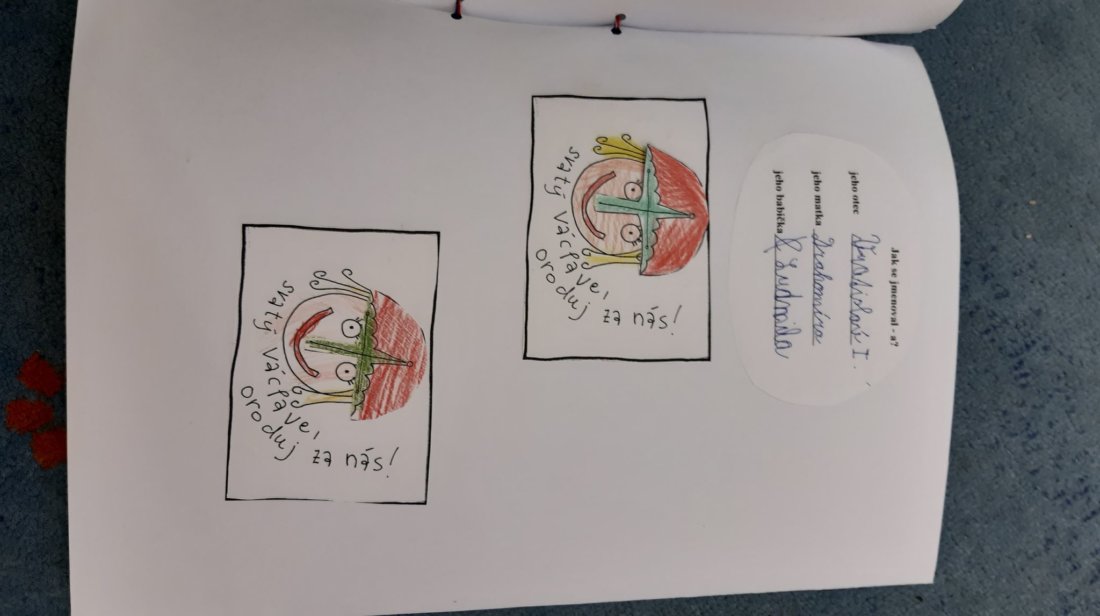 Jak se jmenoval - a?
jeho otec Vratislav I.
jeho matka Drahomíra
jeho babička Ludmila
svatý václave,
oroduj za nás!
svatý václave,
oroduj za nás!